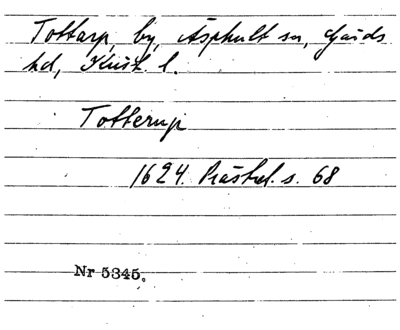 Tottarp, by, Äsphult sn, Gärds
hd, Krist. l.
Totterup
1624. Prästrel. s. 68
Nr 5345.